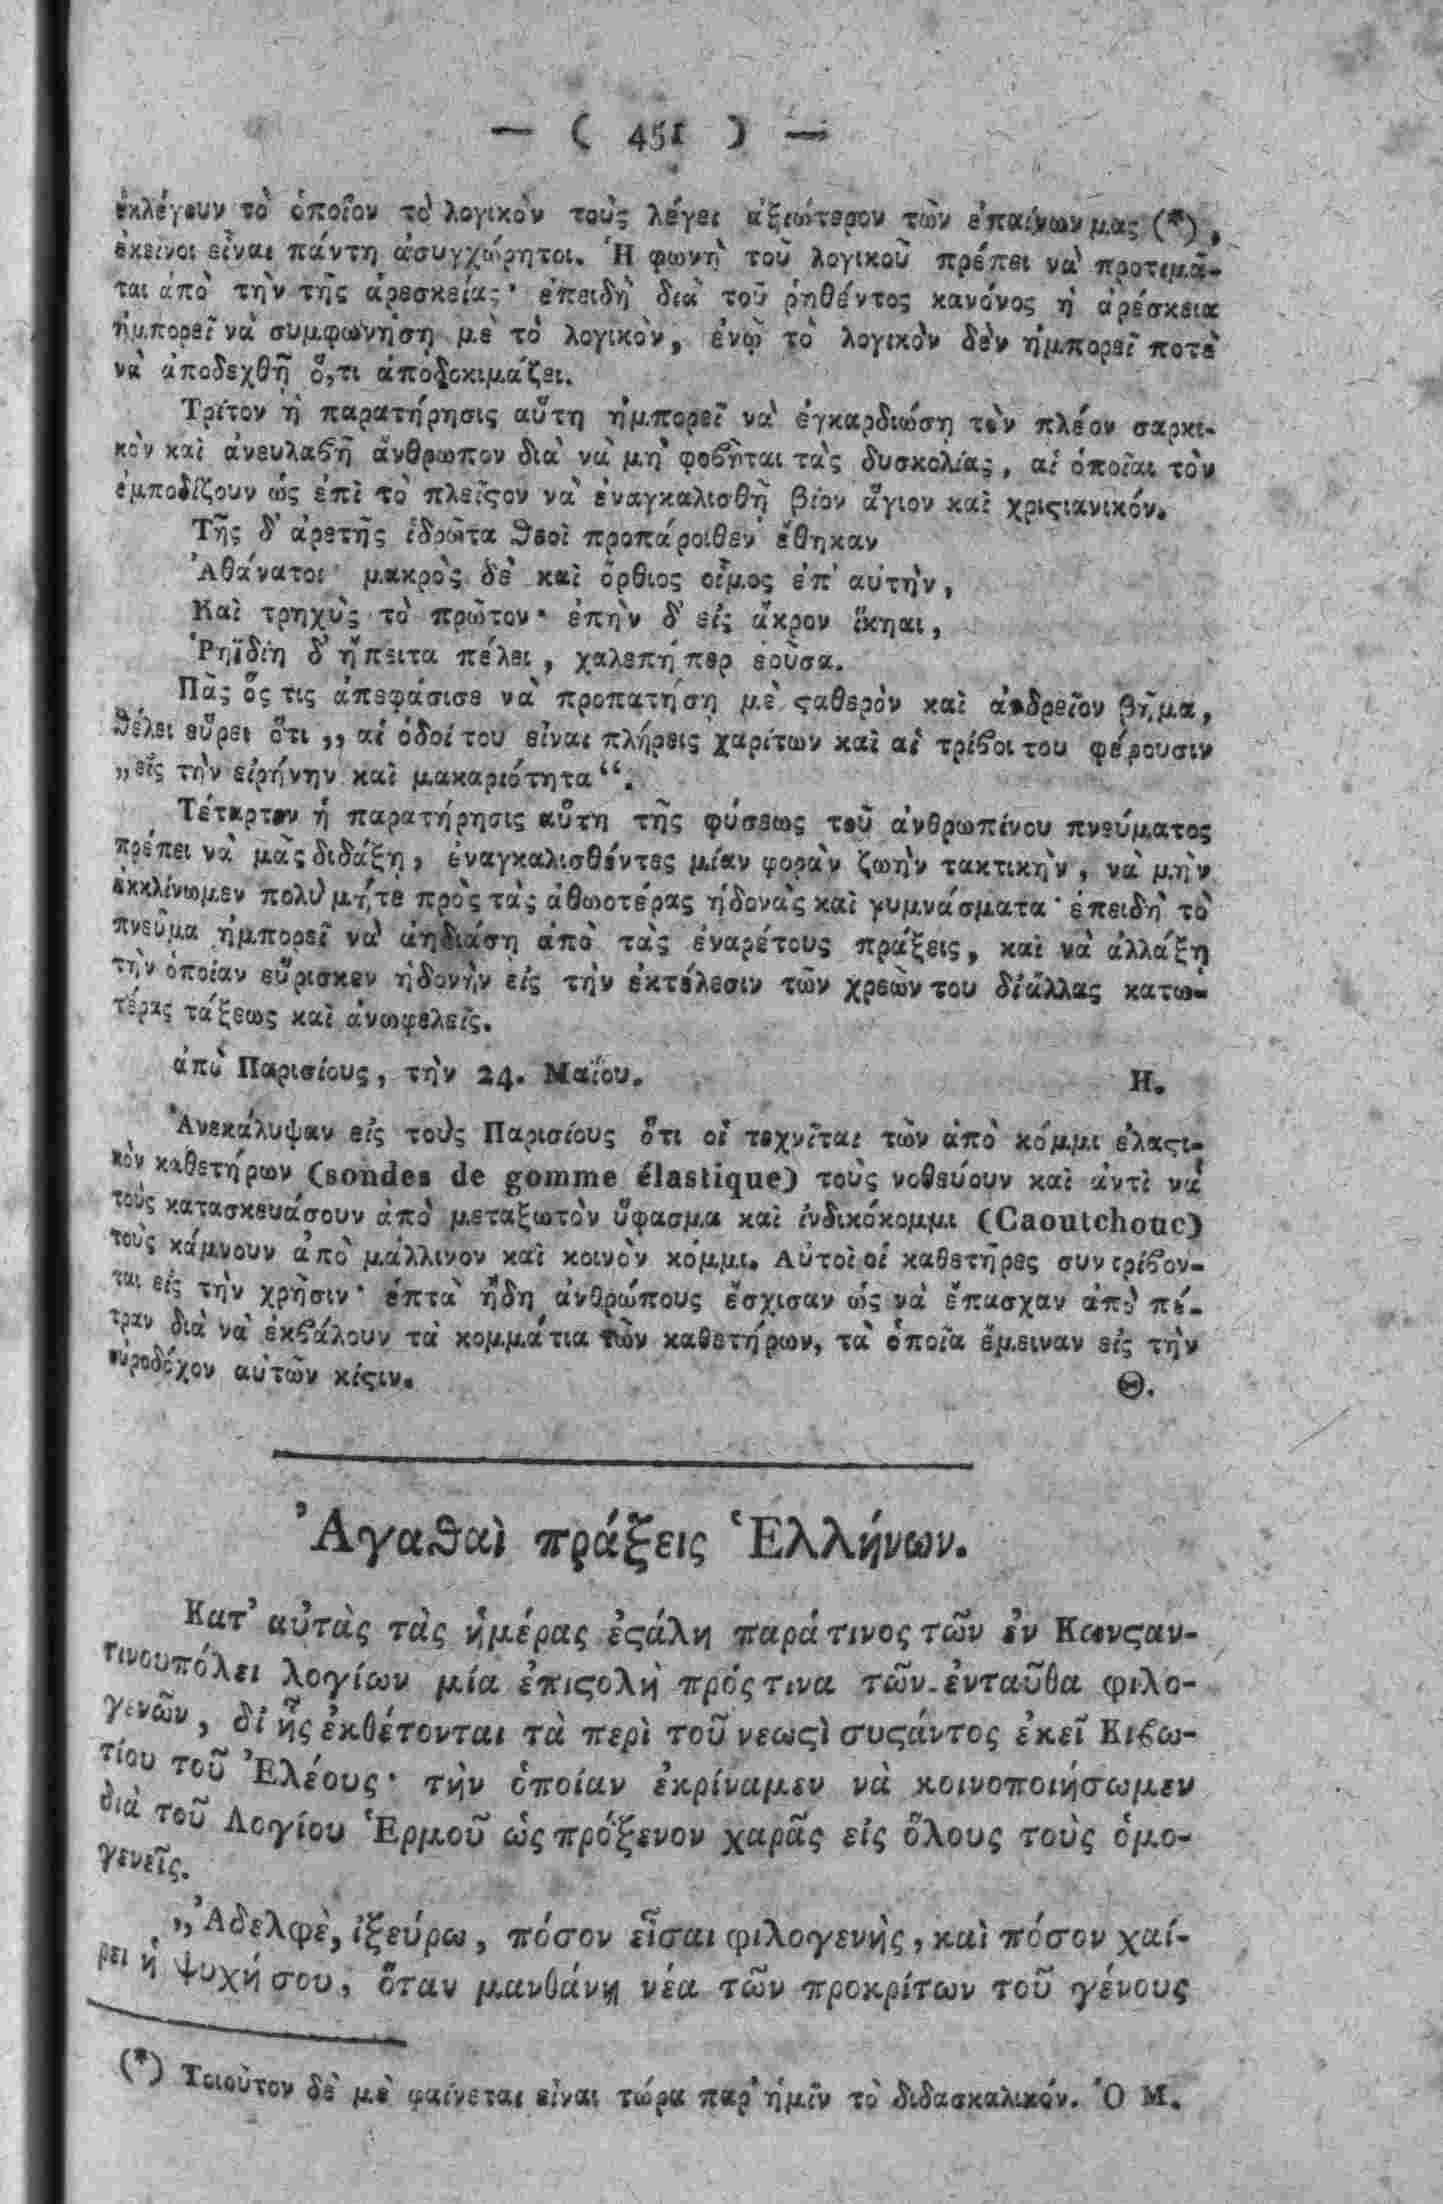 — ( 451 ) —
ἐκλέγουν τὸ ὁποῖον τὸ λογικὸν τοὺς λέγει ἀξιώτερον τῶν ἐπαίνων μας (*),
ἐκεῖνοι εἶναι πάντη ἀσυγχώρητοι. Ἡ φωνὴ τοῦ λογικοῦ πρέπει νὰ προτιμᾶ-
ται ἀπὸ τὴν τῆς ἀρεσκείας· ἐπειδὴ διὰ τοῦ ῥηθέντος κανόνος ἡ ἀρέσκεια
ἠμπορεῖ νὰ συμφωνήσῃ μὲ τὸ λογικὸν, ἐνῷ τὸ λογικὸν δὲν ἠμπορεῖ ποτὲ
νὰ ἀποδεχθῇ ὅ,τι ἀποδοκιμάζει.
Τρίτον ἡ παρατήρησις αὕτη ἠμπορεῖ νὰ ἐγκαρδιώσῃ τὸν πλέον σαρκι-
κὸν καὶ ἀνευλαϐῆ ἄνθρωπον διὰ νὰ μὴ φοϐῆται τὰς δυσκολίας, αἱ ὁποῖαι τὸν
ἐμποδίζουν ὡς ἐπὶ τὸ πλεῖϛον νὰ ἐναγκαλισθῇ βίον ἅγιον καὶ χριϛιανικόν.
Τῆς δ' ἀρετῆς ἱδρῶτα ϑεοὶ προπάροιθεν ἔθηκαν
Ἀθάνατοι· μακρὸς δὲ καὶ ὄρθιος οἶμος ἐπ' αὐτὴν,
Καὶ τρηχὺς τὸ πρῶτον· ἐπὴν δ' εἰς ἄκρον ἵκηαι,
Ῥηϊδίη δ' ἤπειτα πέλει, χαλεπή περ ἐοῦσα.
Πᾶς ὅς τις ἀπεφάσισε νὰ προπατήσῃ μὲ ϛαθερὸν καὶ ἀνδρεῖον βῆμα,
ϑέλει εὕρει ὅτι ,, αἱ ὁδοί του εἶναι πλήρεις χαρίτων καὶ αἱ τρίϐοι του φέρουσιν
,,εἰς τὴν εἰρήνην καὶ μακαριότητα“.
Τέταρτον ἡ παρατήρησις αὕτη τῆς φύσεως τοῦ ἀνθρωπίνου πνεύματος
πρέπει νὰ μᾶς διδάξῃ, ἐναγκαλισθέντες μίαν φορὰν ζωὴν τακτικὴν, νὰ μὴν
ἐκκλίνωμεν πολὺ μήτε πρὸς τὰς ἀθωοτέρας ἡδονὰς καὶ γυμνάσματα· ἐπειδὴ τὸ
πνεῦμα ἠμπορεῖ νὰ ἀηδιάσῃ ἀπὸ τὰς ἐναρέτους πράξεις, καὶ νὰ ἀλλάξῃ
τὴν ὁποίαν εὕρισκεν ἡδονὴν εἰς τὴν ἐκτέλεσιν τῶν χρεὼν του δἰ ἄλλας κατω-
τέρας τάξεως καὶ ἀνωφελεῖς.
ἀπὸ Παρισίους, τὴν 24. Μαΐου. Η.
Ἀνεκάλυψαν εἰς τοὺς Παρισίους ὅτι οἱ τεχνῖται τῶν ἀπὸ κόμμι ἐλαϛι-
κὸν καθετήρων (sondes de gomme élastique) τοὺς νοθεύουν καὶ ἀντὶ νὰ
τοὺς κατασκευάσουν ἀπὸ μεταξωτὸν ὕφασμα καὶ ἰνδικόκομμι (Caoutchouc)
τοὺς κάμνουν ἀπὸ μάλλινον καὶ κοινὸν κόμμι. Αὐτοὶ οἱ καθετῆρες συντρίϐον-
ται εἰς τὴν χρῆσιν· ἑπτὰ ἤδη ἀνθρώπους ἔσχισαν ὡς νὰ ἔπασχαν ἀπὸ πέ-
τραν διὰ νὰ ἐκϐάλουν τὰ κομμάτια τῶν καθετήρων, τὰ ὁποῖα ἔμειναν εἰς τὴν
οὐροδόχον αὐτῶν κίϛιν. Θ.
Ἀγαϑαὶ πράξεις Ἑλλήνων.
Κατ' αὐτὰς τὰς ἡμέρας ἐϛάλη παρά τινος τῶν ἐν Κωνϛαν-
τινουπόλει λογίων μία ἐπιϛολὴ πρός τινα τῶν ἐνταῦθα φιλο-
γενῶν, δἰ ἧς ἐκθέτονται τὰ περὶ τοῦ νεωϛὶ συϛάντος ἐκεῖ Κιϐω-
τίου τοῦ Ἐλέους· τὴν ὁποίαν ἐκρίναμεν νὰ κοινοποιήσωμεν
διὰ τοῦ Λογίου Ἑρμοῦ ὡς πρόξενον χαρᾶς εἰς ὅλους τοὺς ὁμο-
γενεῖς.
,,Ἀδελφὲ, ἰξεύρω, πόσον εἶσαι φιλογενὴς, καὶ πόσον χαί-
ρει ἡ ψυχή σου, ὅταν μανθάνῃ νέα τῶν προκρίτων τοῦ γένους
(*) Τοιοῦτον δὲ μὲ φαίνεται εἶναι τώρα παρ' ἡμῖν τὸ διδασκαλικόν. Ὁ Μ.